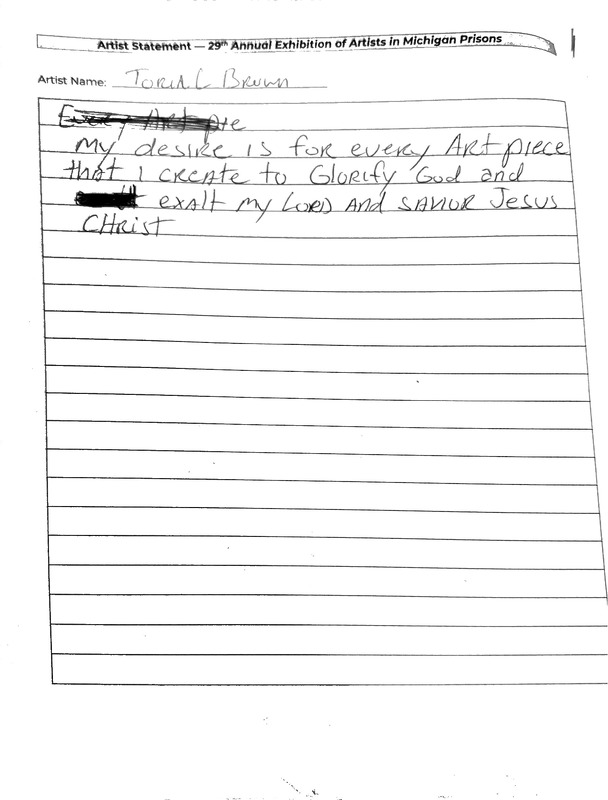 Artist Statement — 29th Annual Exhibition of Artists in Michigan Prisons
Artist Name: Torial Brown
Every Art pie
My desire is for every Art piece
that I create to Glorify God and
exalt my Lord and savior Jesus
CHrist